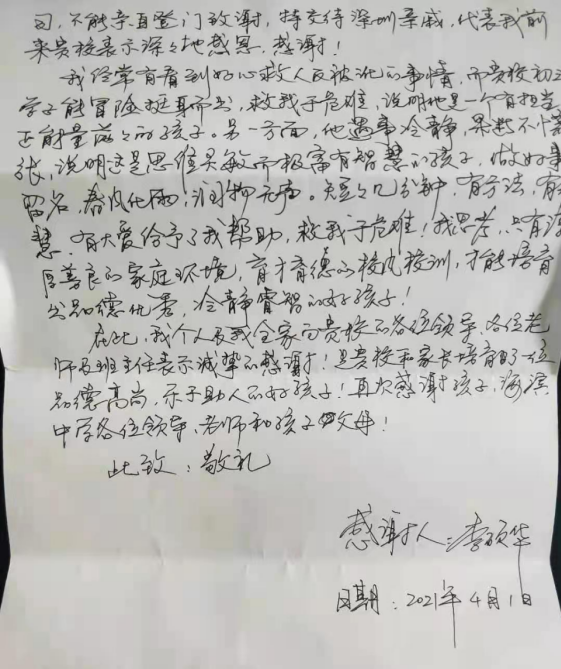 司，不能亲自登门致谢，特交待深圳亲戚，代表我前
来贵校表示深々地感恩、感谢！
我经常有看到好心救人反被讹的事情，而贵校初三
学子能冒险挺身而出，救我于危难，说明他是一个有担当
正能量满々的孩子。另一方面，他遇事冷静，果断不慌
张，说明这是思维灵敏而极富有智慧的孩子，做好事
留名，春风化雨，润物无声。短々几分钟，有方法，有
慧，有大爱给予了我帮助，救我于危难！我思考，只有
厚善良的家庭环境，育才育德的校风校训，才能培育
出品德优秀，冷静睿智的好孩子！
在此，我个人及我全家向贵校的各位领导、各位老
师及班主任表示诚挚的感谢！是贵校和家长培育了一位
品德高尚，乐于助人的好孩子！再次感谢孩子，海滨
中学各位领导、老师和孩子父母！
此致：敬礼
感谢人：李硕华
日期：2021年4月1日